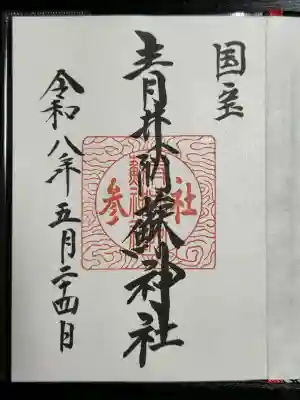 国宝
青井阿蘇神社
参社
令和八年五月二十四日